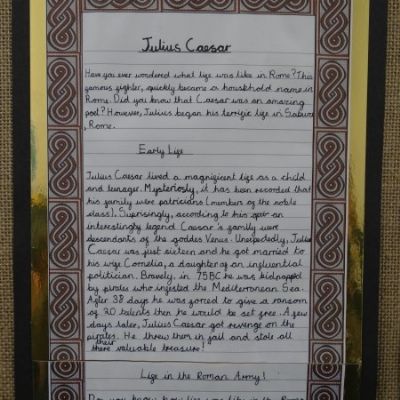 Julius Caesar
Have you ever wondered what life was like in Rome? This
famous fighter, quickly became a household name in
Rome. Did you know that Caesar was an amazing
poet? However, Julius began his terrific life in Subura
, Rome.
Early Life
Julius Caesar lived a magnificent life as a child
and teenager. Mysteriosly, it has been recorded that
his family were patricians (members of the noble
class). Suprisingly, according to his an
interestingly legend Caesar's family were
descendants of the goddes Venus. Unexpectedly, Julius
Caesar was just sixteen and he got married to
his wife Cornelia, a daughter of an influential
politician. Bravely, in 75BC he was kidnapped
by pirates who infested the Mediterranean Sea.
After 38 days he was forced to give a ransom
of 20 talents then he would be set free. A few
days later, Julius Caesar got revenge on the
pirates. He threw them in jail and stole all
their valuable treasure!
Life in the Roman Army!